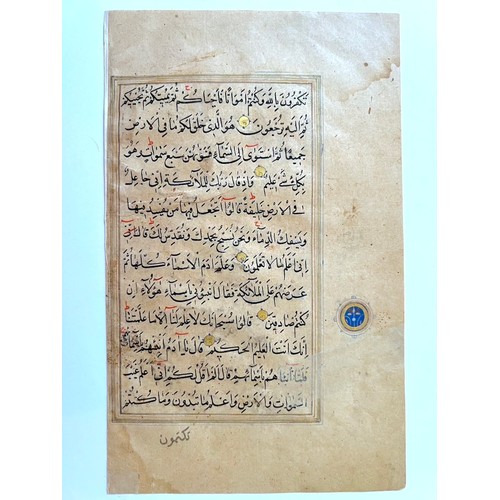 تكفرون بالله وكنتم امواتا فاحياكم ثم يميتكم ثم يحييكم
ثم اليه ترجعون هو الذي خلق لكم ما في الارض
جميعا ثم استوى الى السماء فسويهن سبع سموات وهو
بكل شئ عليم واذ قال ربك للملائكة اني جاعل
في الارض خليفة قالوا اتجعل فيها من يفسد فيها
ويسفك الدماء ونحن نسبح بحمدك ونقدس لك قال
اني اعلم ما لا تعلمون وعلم ادم الاسماء كلها ثم
عرضهم على الملائكة فقال انبئوني باسماء هؤلاء ان
كنتم صادقين قالوا سبحانك لا علم لنا الا ما علمتنا
انك انت العليم الحكيم قال يا ادم انبئهم باسمائهم
فلما انباهم باسمائهم قال الم اقل لكم اني اعلم غيب
السموات والارض واعلم ما تبدون وما كنتم
تكتمون